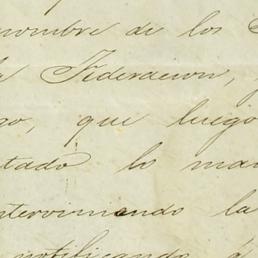 nombre de los
la Federacion,
go, que luego
tado lo man
nterviniendo la
notificando á